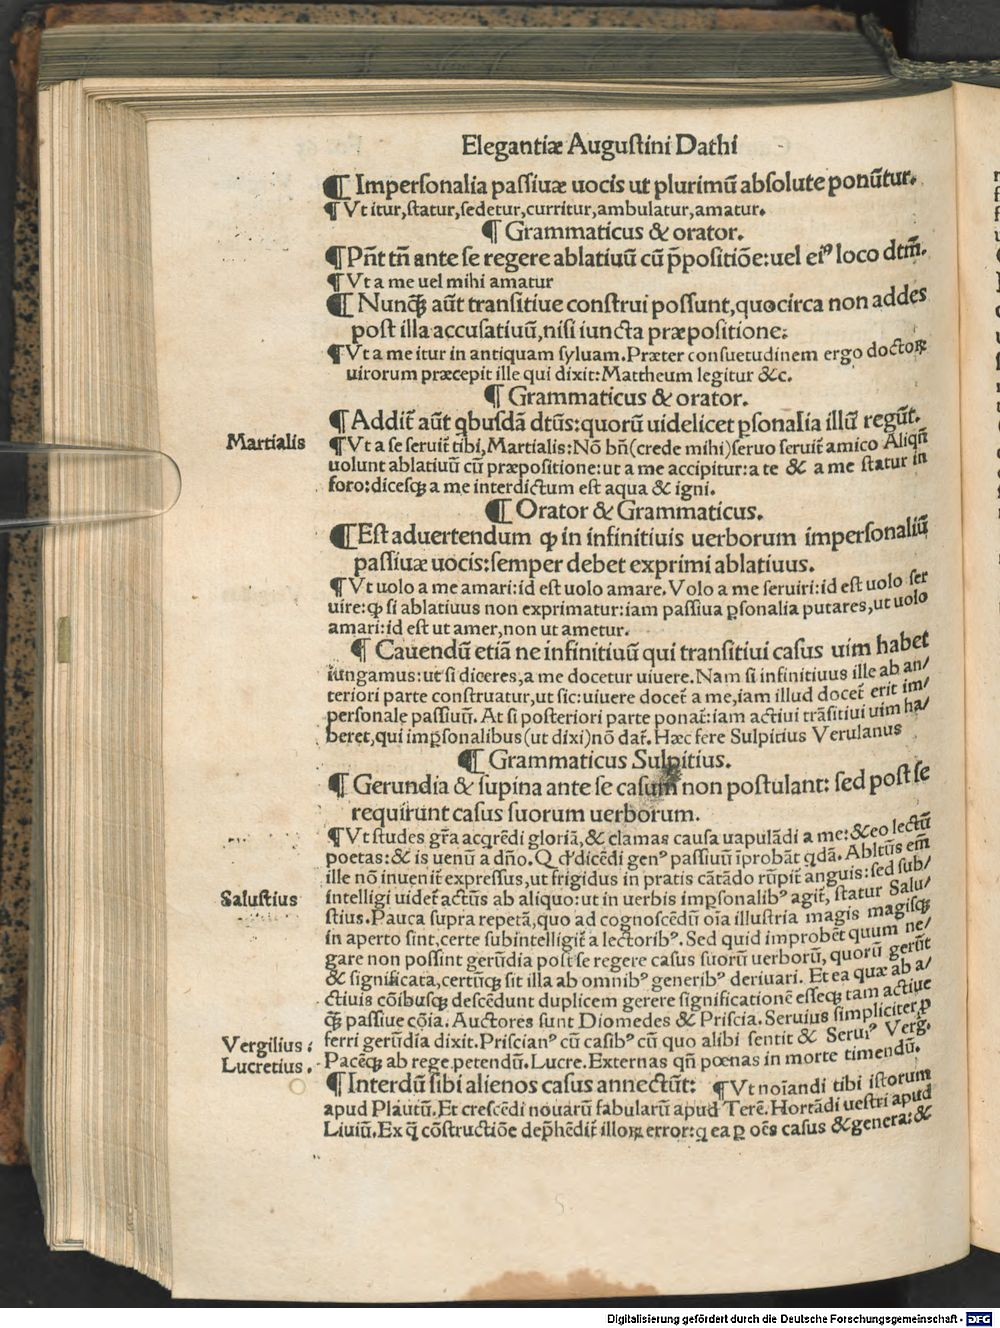 Elegantiæ Augustini Dathi
¶ Impersonalia passiuæ uocis ut plurimũ absolute ponũtur.
¶ Vt itur,statur,sedetur,curritur,ambulatur,amatur.
¶ Grammaticus & orator.
¶ Pñt tñ ante se regere ablatiuũ cũ p̃positiõe:uel eiꝰ loco dtm̃.
¶ Vt a me uel mihi amatur
¶ Nunꝗ̃ aũt transitiue construi possunt,quocirca non addes
post illa accusatiuũ,nisi iuncta præpositione:
¶ Vt a me itur in antiquam syluam.Præter consuetudinem ergo doctoꝝ
uirorum præcepit ille qui dixit:Mattheum legitur &c.
¶ Grammaticus & orator.
¶ Addit̃ aũt qbusdã dtũs:quorũ uidelicet ꝑsonalia illũ regũt.
Martialis
¶ Vt a se seruit̃ tibi,Martialis:Nõ bñ(crede mihi)seruo seruit̃ amico Aliqñ
uolunt ablatiuũ cũ præpositione:ut a me accipitur:a te & a me statur in
foro:dicesꝗ a me interdictum est aqua & igni.
¶ Orator & Grammaticus.
¶ Est aduertendum ꝙ in infinitiuis uerborum impersonaliũ
passiuæ uocis:semper debet exprimi ablatiuus.
¶ Vt uolo a me amari:id est uolo amare.Volo a me seruiri:id est uolo ser
uire:ꝙ si ablatiuus non exprimatur:iam passiua ꝑsonalia putares,ut uolo
amari:id est ut amer,non ut ametur.
¶ Cauendũ etiã ne infinitiuũ qui transitiui casus uim habet
iungamus:ut si diceres,a me docetur uiuere.Nam si infinitiuus ille ab an/
teriori parte construatur,ut sic:uiuere docet̃ a me,iam illud docet̃ erit im/
personale passiuũ. At si posteriori parte ponat̃:iam actiui trãsitiui uim ha/
beret,qui imꝑsonalibus(ut dixi)nõ dat̃. Hæc fere Sulpitius Verulanus
¶ Grammaticus Sulpitius.
¶ Gerundia & supina ante se casum non postulant: sed post se
requirunt casus suorum uerborum.
¶ Vt studes gr̃a acqrẽdi gloriã,& clamas causa uapulãdi a me:&eo lectũ
poetas:& is uenũ a dño. dicẽdi genꝰ passiuũ ĩprobãt qdã. Abltũs em̃
ille nõ inuenit̃ expressus,ut frigidus in pratis cãtãdo rũpit̃ anguis:sed sub/
Salustius
intelligi uidet̃ actũs ab aliquo:ut in uerbis imꝑsonalibꝰ agit̃, statur Salu/
stius.Pauca supra repetã,quo ad cognoscẽdũ oĩa illustria magis magisꝗ
in aperto sint,certe subintelligit̃ a lectoribꝰ. Sed quid improbẽt quum ne/
gare non possint gerũdia post se regere casus suorũ uerborũ, quorũ gerũt
& significata,certũꝗ sit illa ab omnibꝰ generibꝰ deriuari. Et ea quæ ab a/
ctiuis cõibusꝗ descẽdunt duplicem gerere significationẽ esseꝗ tam actiue
ꝗ̃ passiue cõia. Auctores sunt Diomedes & Priscia. Seruius simpliciter ꝑ
Vergilius :
ferri gerũdia dixit. Priscianꝰ cũ casibꝰ cũ quo alibi sentit & Seruiꝰ Verg.
Lucretius .
Pacẽꝗ ab rege petendũ.Lucre. Externas qñ pœnas in morte timendũ.
¶ Interdũ sibi alienos casus annectũt: ¶ Vt noĩandi tibi istorum
apud Plautũ.Et crescẽdi nouarũ fabularũ apud Terẽ. Hortãdi uestri apud
Liuiũ.Ex q̃ cõstructiõe dep̃hẽdit̃ illoꝝ error:q ea ꝑ oẽs casus & genera:&
Digitalisierung gefördert durch die Deutsche Forschungsgemeinschaft - DFG